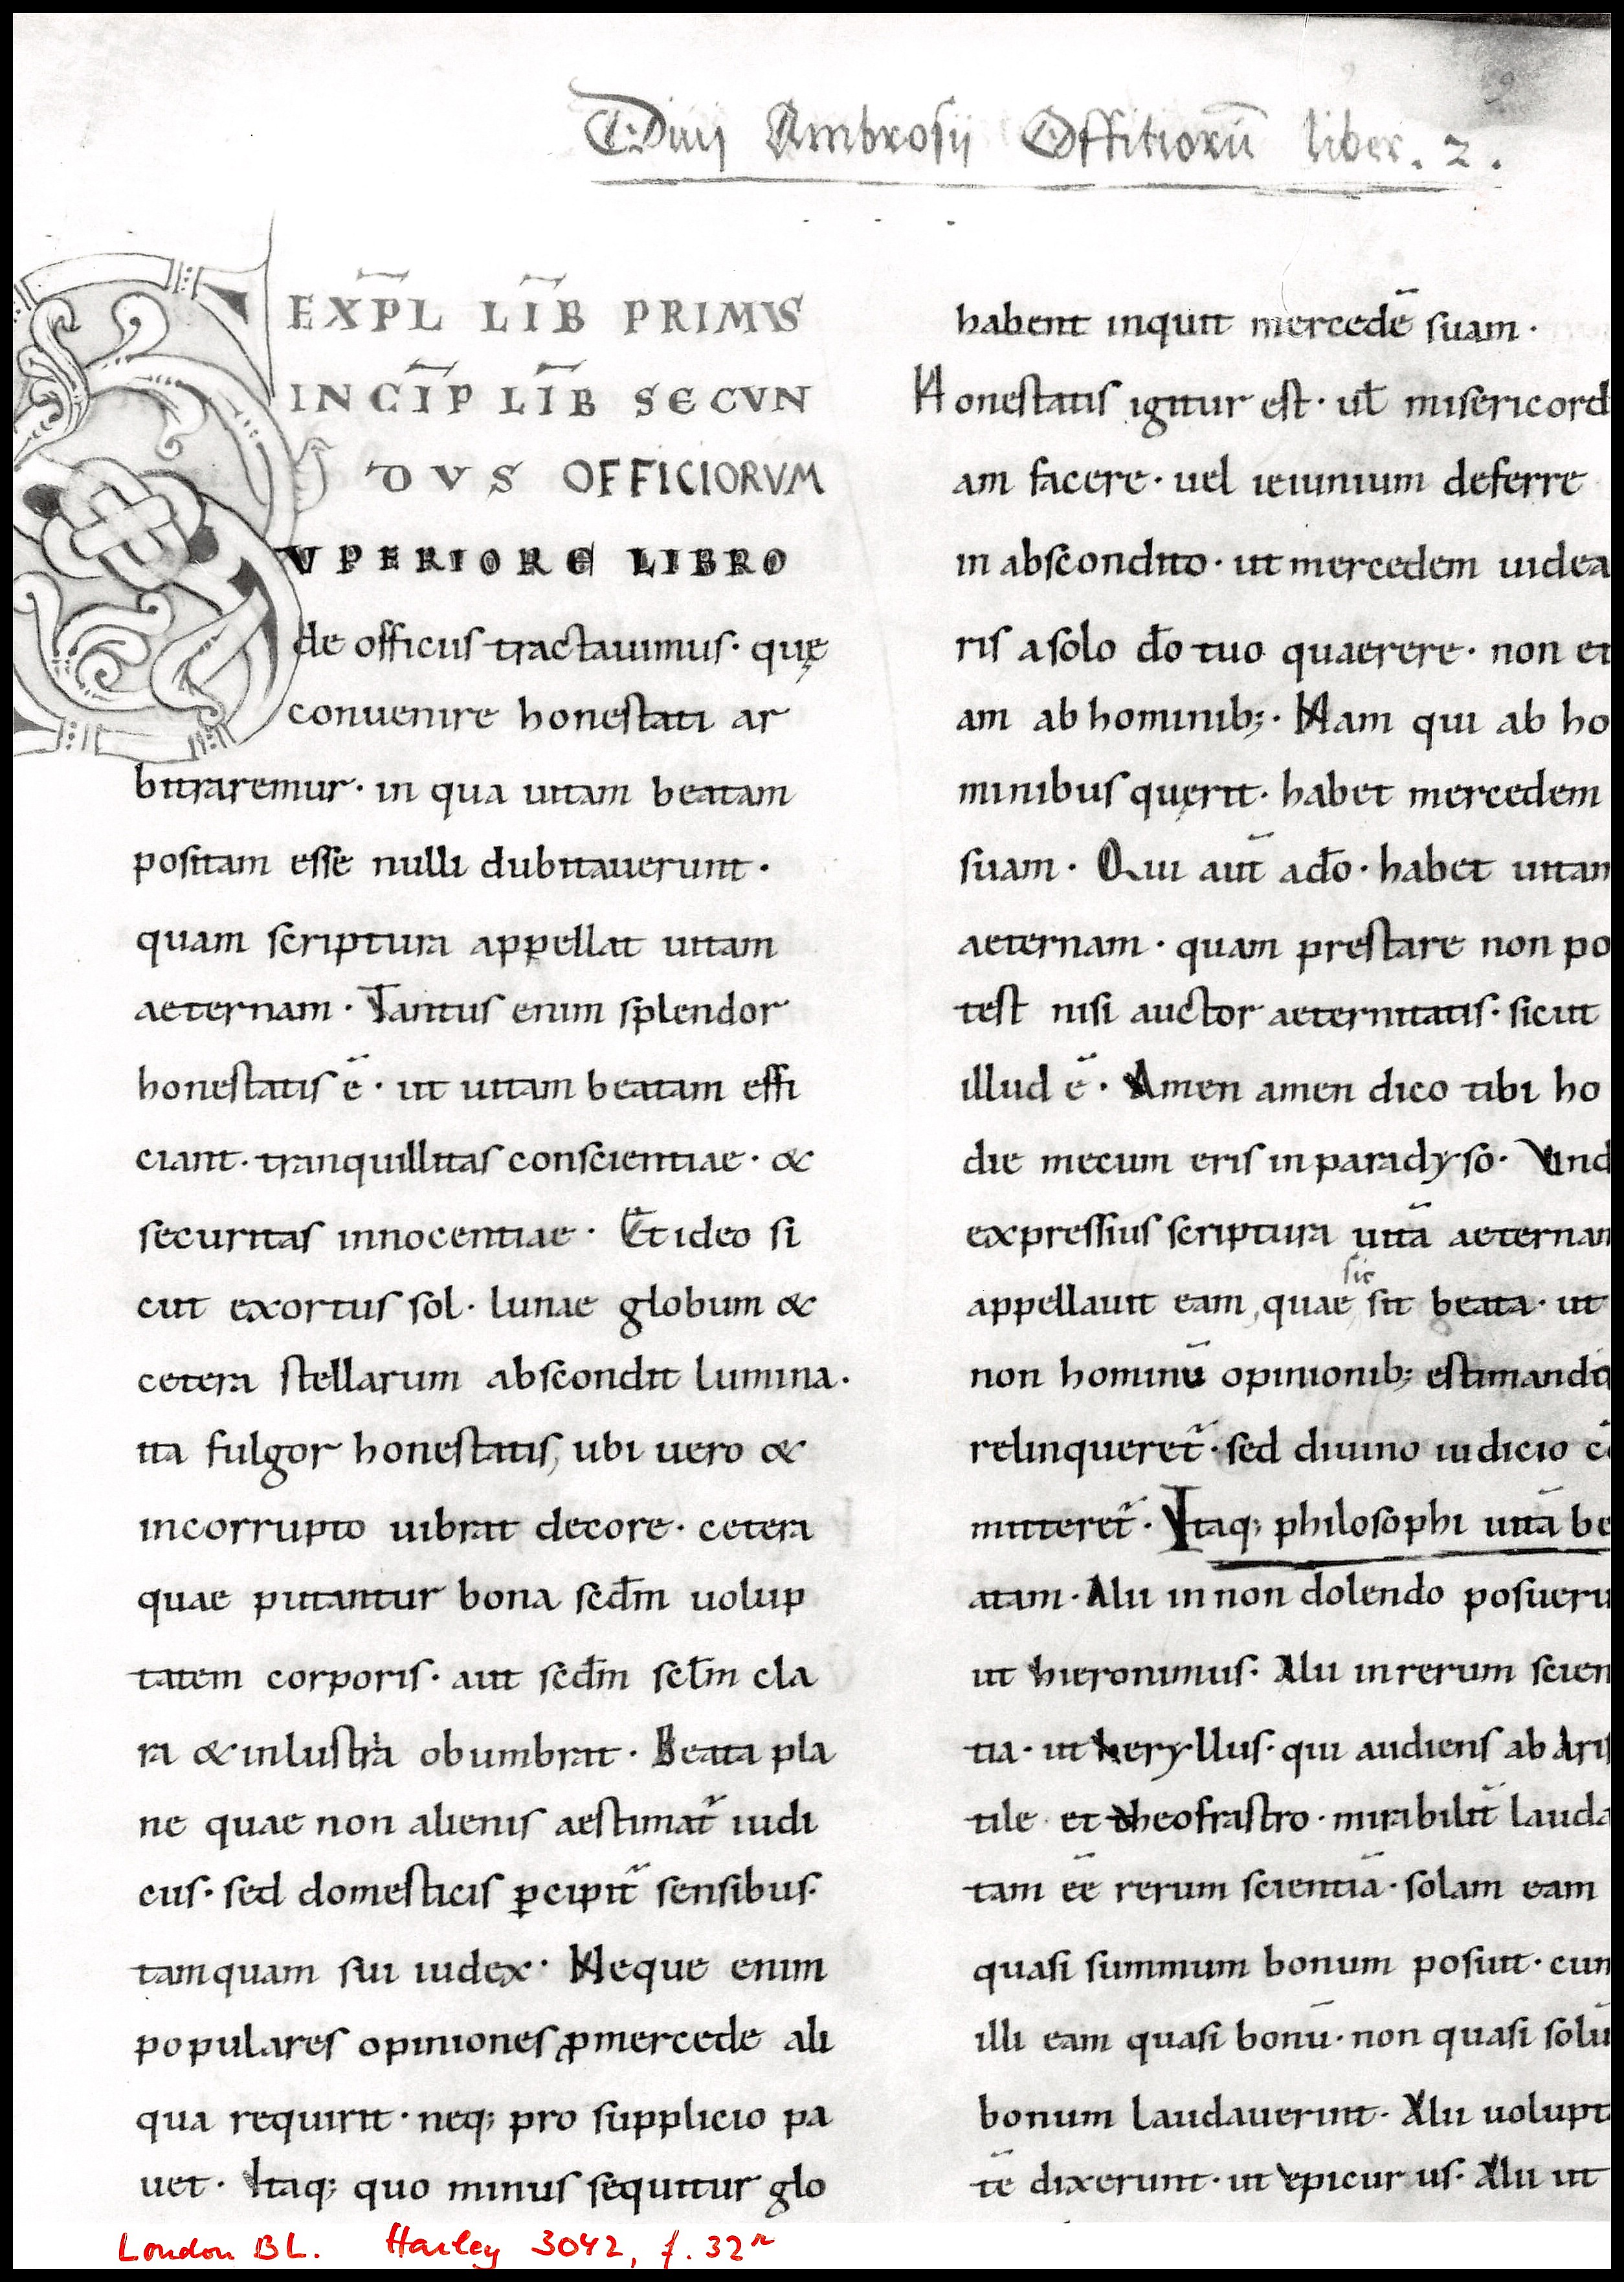 Diuij Ambrosij Offitiorū liber. 2.
EXP̄L LĪB PRIMVS
INCĪP LĪB SECVN
DVS OFFICIORVM
VPERIORE LIBRO
de officiis tractauimus · quę
conuenire honestati ar
bitraremur · in qua uitam beatam
positam esse nulli dubitauerunt ·
quam scriptura appellat uitam
aeternam · Tantus enim splendor
honestatis ē · ut uitam beatam effi
ciant · tranquillitas conscientiae · &
securitas innocentiae · Et ideo si
cut exortus sol · lunae globum &
cetera stellarum abscondit lumina ·
ita fulgor honestatis, ubi uero &
incorrupto uibrat decore · cetera
quae putantur bona scdm̄ uolup
tatem corporis · aut scdm̄ sclm̄ cla
ra & inlustria obumbrat · Beata pla
ne quae non alienis aestimat̄ iudi
ciis · sed domesticis ꝑcipit̄ sensibus ·
tamquam sui iudex · Neque enim
populares opiniones ꝓ mercede ali
qua requirit · neq; pro supplicio pa
uet · Itaq; quo minus sequitur glo
habent inquit mercedē suam ·
Honestatis igitur est · ut̄ misericord
am facere · uel ieiunium deferre
in abscondito · ut mercedem uidea
ris a solo dō tuo quaerere · non et
am ab hominib; · Nam qui ab ho
minibus quęrit · habet mercedem
suam · Qui aut̄ a dō · habet uitam
aeternam · quam prestare non po
test nisi auctor aeternitatis · sicut
illud ē · Amen amen dico tibi ho
die mecum eris in paradyso · Vnd
expressius scriptura uitā aeternam
sic
appellauit eam, quae sit beata · ut
non hominū opinionib; estimandą
relinqueret̄ · sed diuino iudicio cō
mitteret̄ · Itaq; philosophi uitā be
atam · Alii in non dolendo posueru
ut hieronimus · Alii in rerum scien
tia · ut heryllus · qui audiens ab Aris
tile et theofrastro · mirabilit̄ lauda
tam ēē rerum scientiā · solam eam
quasi summum bonum posuit · cum
illi eam quasi bonū · non quasi solū
bonum laudauerint · Alii uolupta
tē dixerunt · ut epicurus · Alii ut
London BL. Harley 3042, f. 32r